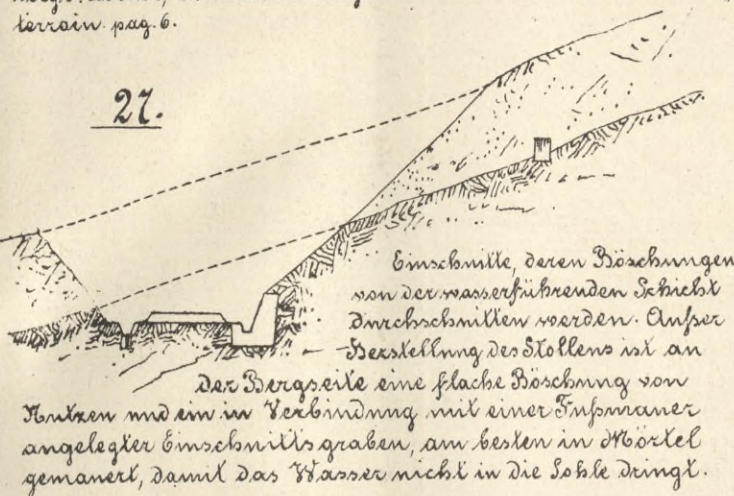 terrain. pag. 6.
27.
Einschnitte, deren Böschungen
von der wasserführenden Schicht
durchschnitten werden. Außer
Herstellung des Stollens ist an
der Bergseite eine flache Böschung von
Nutzen und ein in Verbindung mit einer Fußmauer
angelegter Einschnittsgraben, am besten in Mörtel
gemauert, damit das Wasser nicht in die Sohle dringt.